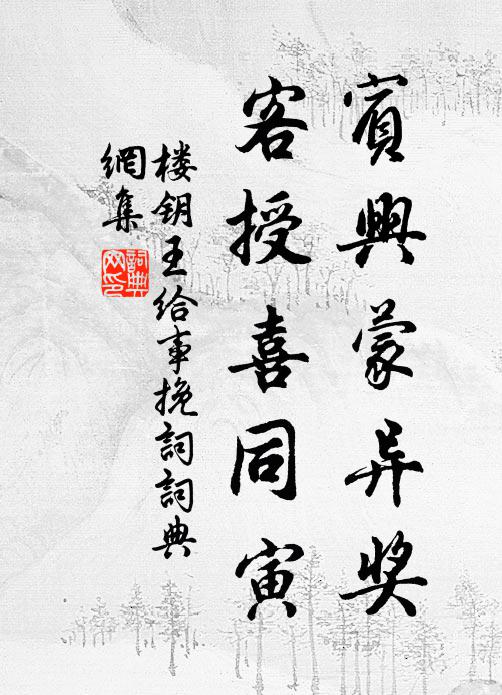 賓興蒙异奖
客授喜同寅
楼钥王给事挽詞詞典
網集
詞典
网印